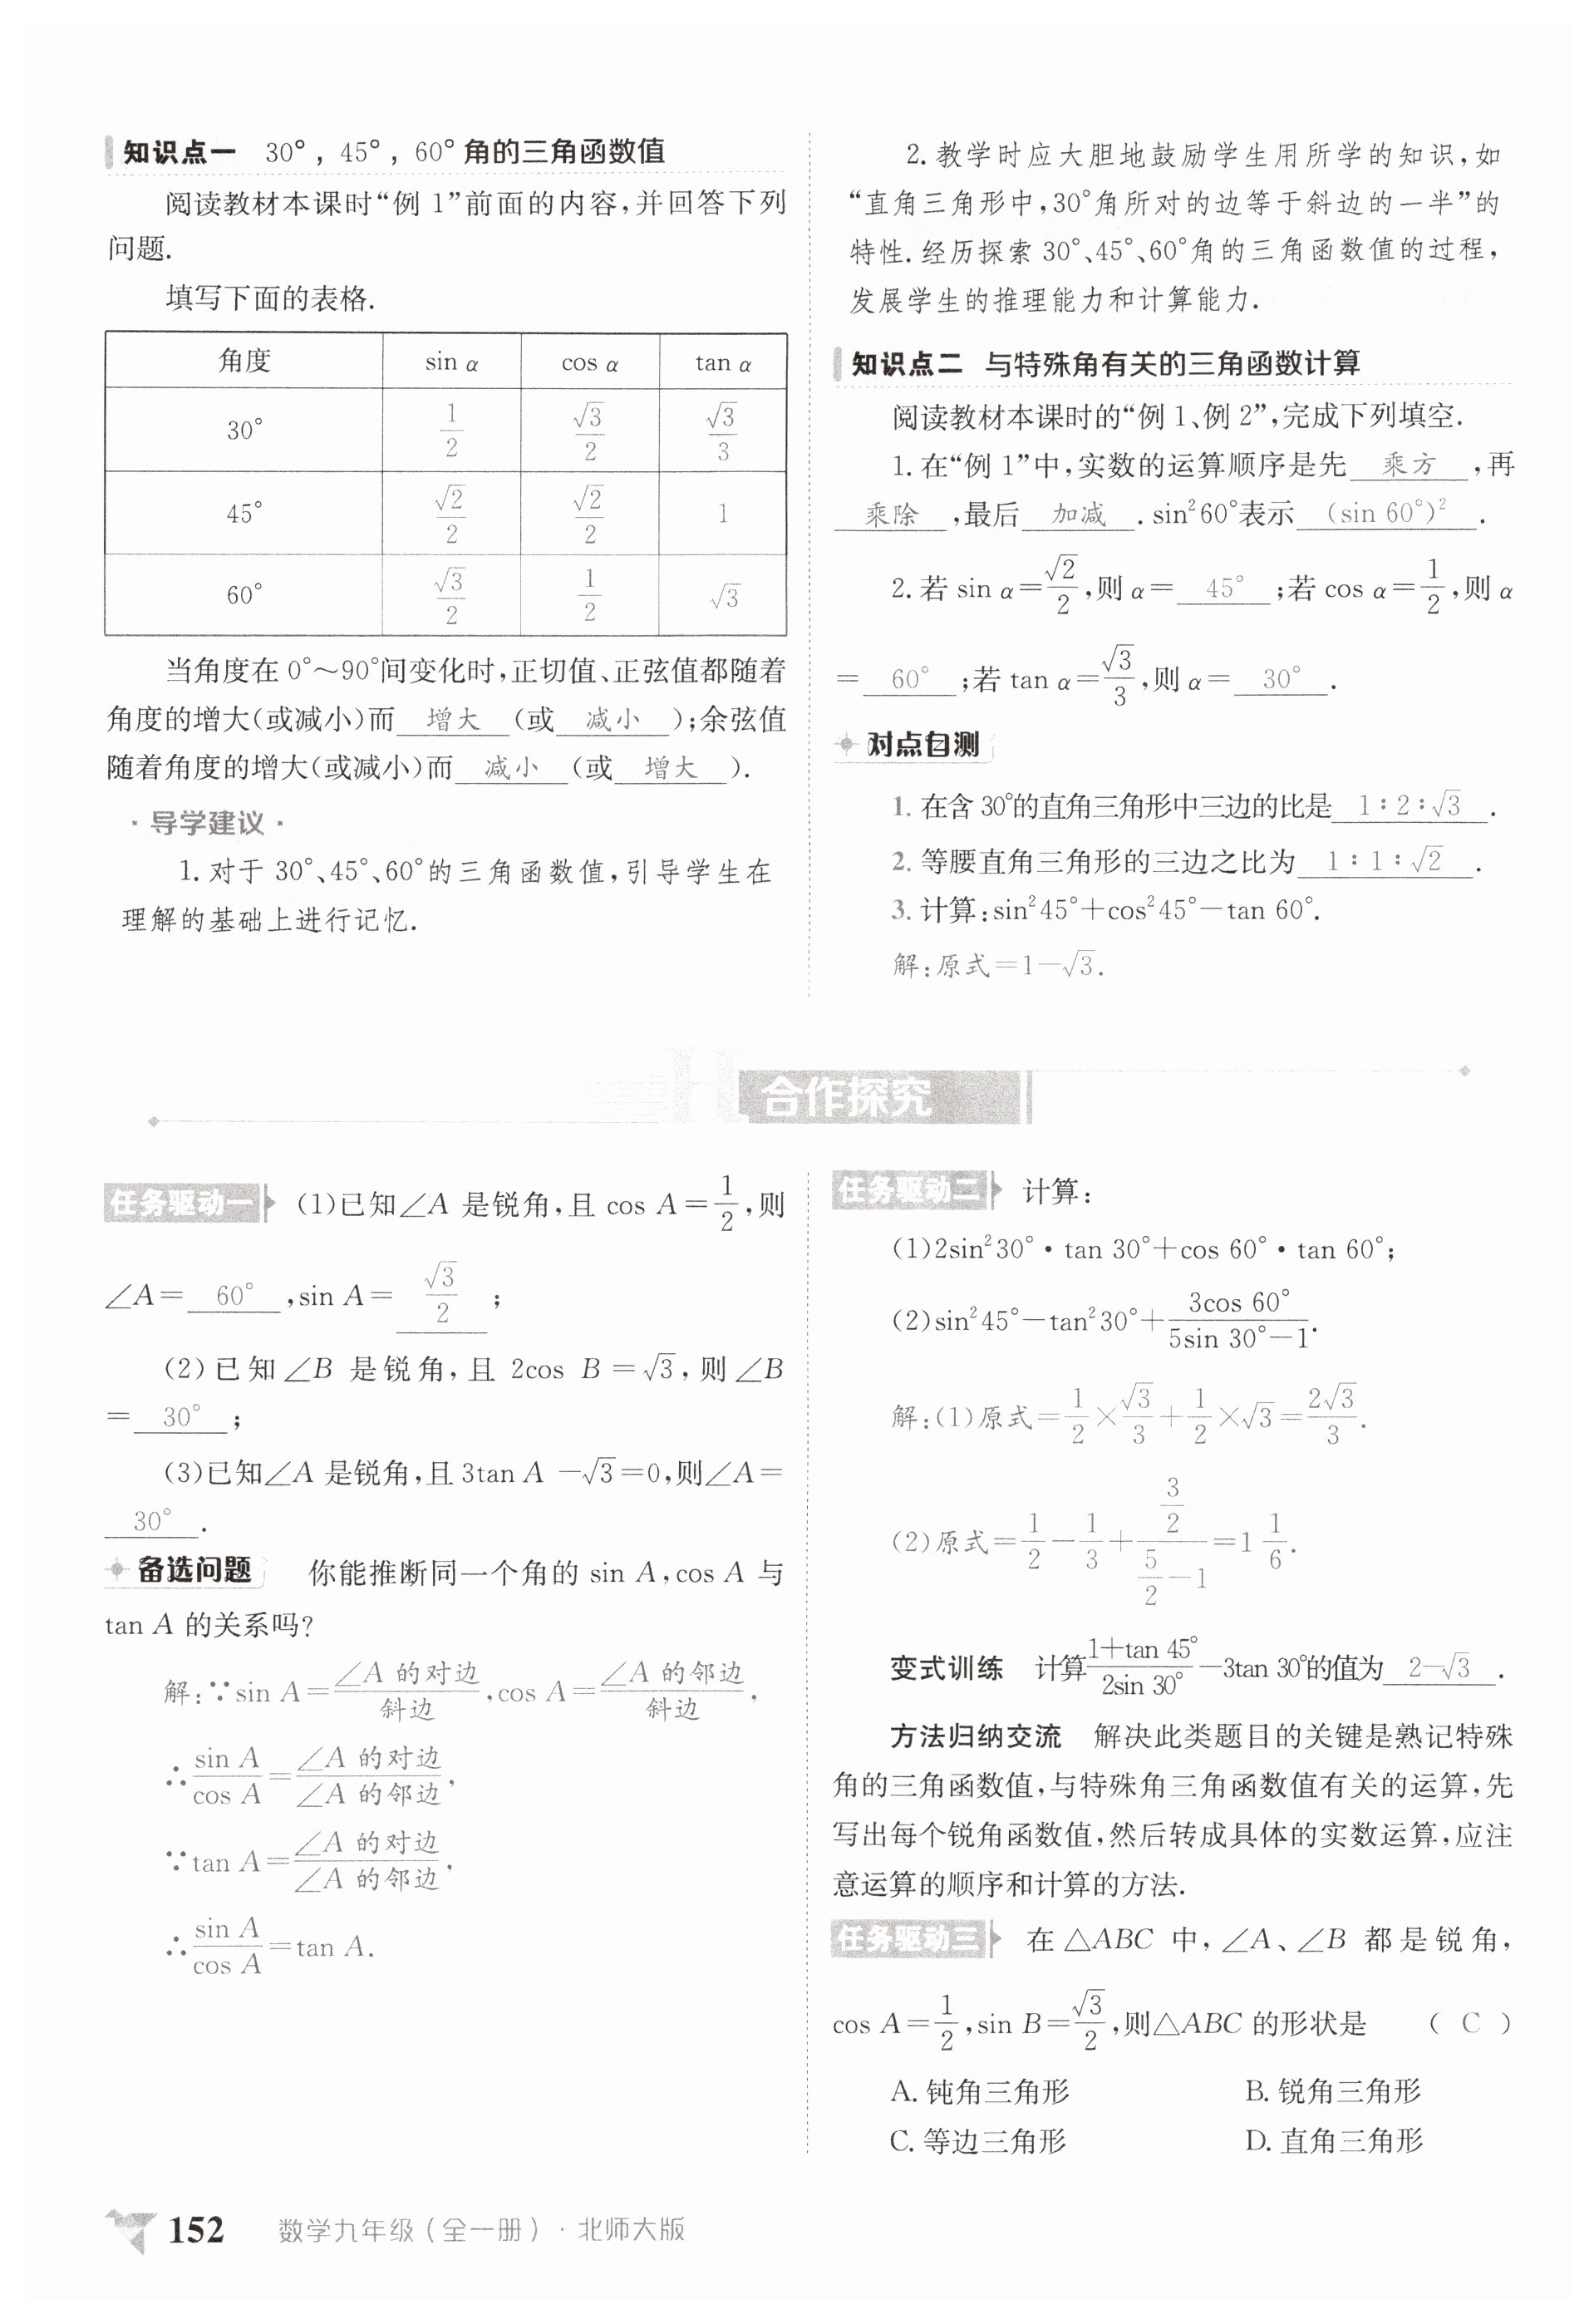 知识点一 30°，45°，60°角的三角函数值
阅读教材本课时“例 1”前面的内容，并回答下列
问题.
填写下面的表格.
角度 sin α cos α tan α
30° 1/2 √3/2 √3/3
45° √2/2 √2/2 1
60° √3/2 1/2 √3
当角度在 0°～90°间变化时，正切值、正弦值都随着
角度的增大(或减小)而 增大 (或 减小 )；余弦值
随着角度的增大(或减小)而 减小 (或 增大 ).
·导学建议·
1. 对于 30°、45°、60°的三角函数值，引导学生在
理解的基础上进行记忆.
2. 教学时应大胆地鼓励学生用所学的知识，如
“直角三角形中，30°角所对的边等于斜边的一半”的
特性. 经历探索 30°、45°、60°角的三角函数值的过程，
发展学生的推理能力和计算能力.
知识点二 与特殊角有关的三角函数计算
阅读教材本课时的“例 1、例 2”，完成下列填空.
1. 在“例 1”中，实数的运算顺序是先 乘方 ，再
乘除 ，最后 加减 . sin²60°表示 (sin 60°)² .
2. 若 sin α=√2/2，则 α= 45° ；若 cos α=1/2，则 α
= 60° ；若 tan α=√3/3，则 α= 30° .
对点自测
1. 在含 30°的直角三角形中三边的比是 1∶2∶√3 .
2. 等腰直角三角形的三边之比为 1∶1∶√2 .
3. 计算：sin²45°+cos²45°-tan 60°.
解：原式=1-√3.
合作探究
任务驱动一 (1)已知∠A 是锐角，且 cos A=1/2，则
∠A= 60° ，sin A= √3/2 ；
(2) 已知∠B 是锐角，且 2cos B=√3，则∠B
= 30° ；
(3)已知∠A 是锐角，且 3tan A -√3=0，则∠A=
30° .
备选问题 你能推断同一个角的 sin A，cos A 与
tan A 的关系吗？
解：∵sin A=∠A 的对边/斜边，cos A=∠A 的邻边/斜边，
∴sin A/cos A=∠A 的对边/∠A 的邻边，
∵tan A=∠A 的对边/∠A 的邻边，
∴sin A/cos A=tan A.
任务驱动二 计算：
(1)2sin²30°·tan 30°+cos 60°·tan 60°；
(2)sin²45°-tan²30°+3cos 60°/(5sin 30°-1).
解：(1)原式=1/2×√3/3+1/2×√3=2√3/3.
(2)原式=1/2-1/3+(3/2)/(5/2-1)=1 1/6.
变式训练 计算(1+tan 45°)/(2sin 30°)-3tan 30°的值为 2-√3 .
方法归纳交流 解决此类题目的关键是熟记特殊
角的三角函数值，与特殊角三角函数值有关的运算，先
写出每个锐角函数值，然后转成具体的实数运算，应注
意运算的顺序和计算的方法.
任务驱动三 在△ABC 中，∠A、∠B 都是锐角，
cos A=1/2，sin B=√3/2，则△ABC 的形状是 ( C )
A. 钝角三角形 B. 锐角三角形
C. 等边三角形 D. 直角三角形
152 数学九年级(全一册)·北师大版